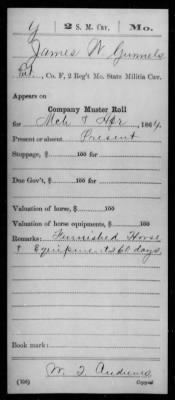 Y | 2 S. M. Cav. | Mo.
James W Gunnels
Pvt., Co. F, 2 Reg't Mo. State Militia Cav.
Appears on
Company Muster Roll
for Mch & Apr, 1864
Present or absent Present
Stoppage, $ 100 for
Due Gov't, $ 100 for
Valuation of horse, $ 100
Valuation of horse equipments, $ 100
Remarks: Furnished Horse
& Equipments 60 days
Book mark:
(356)
Copyist